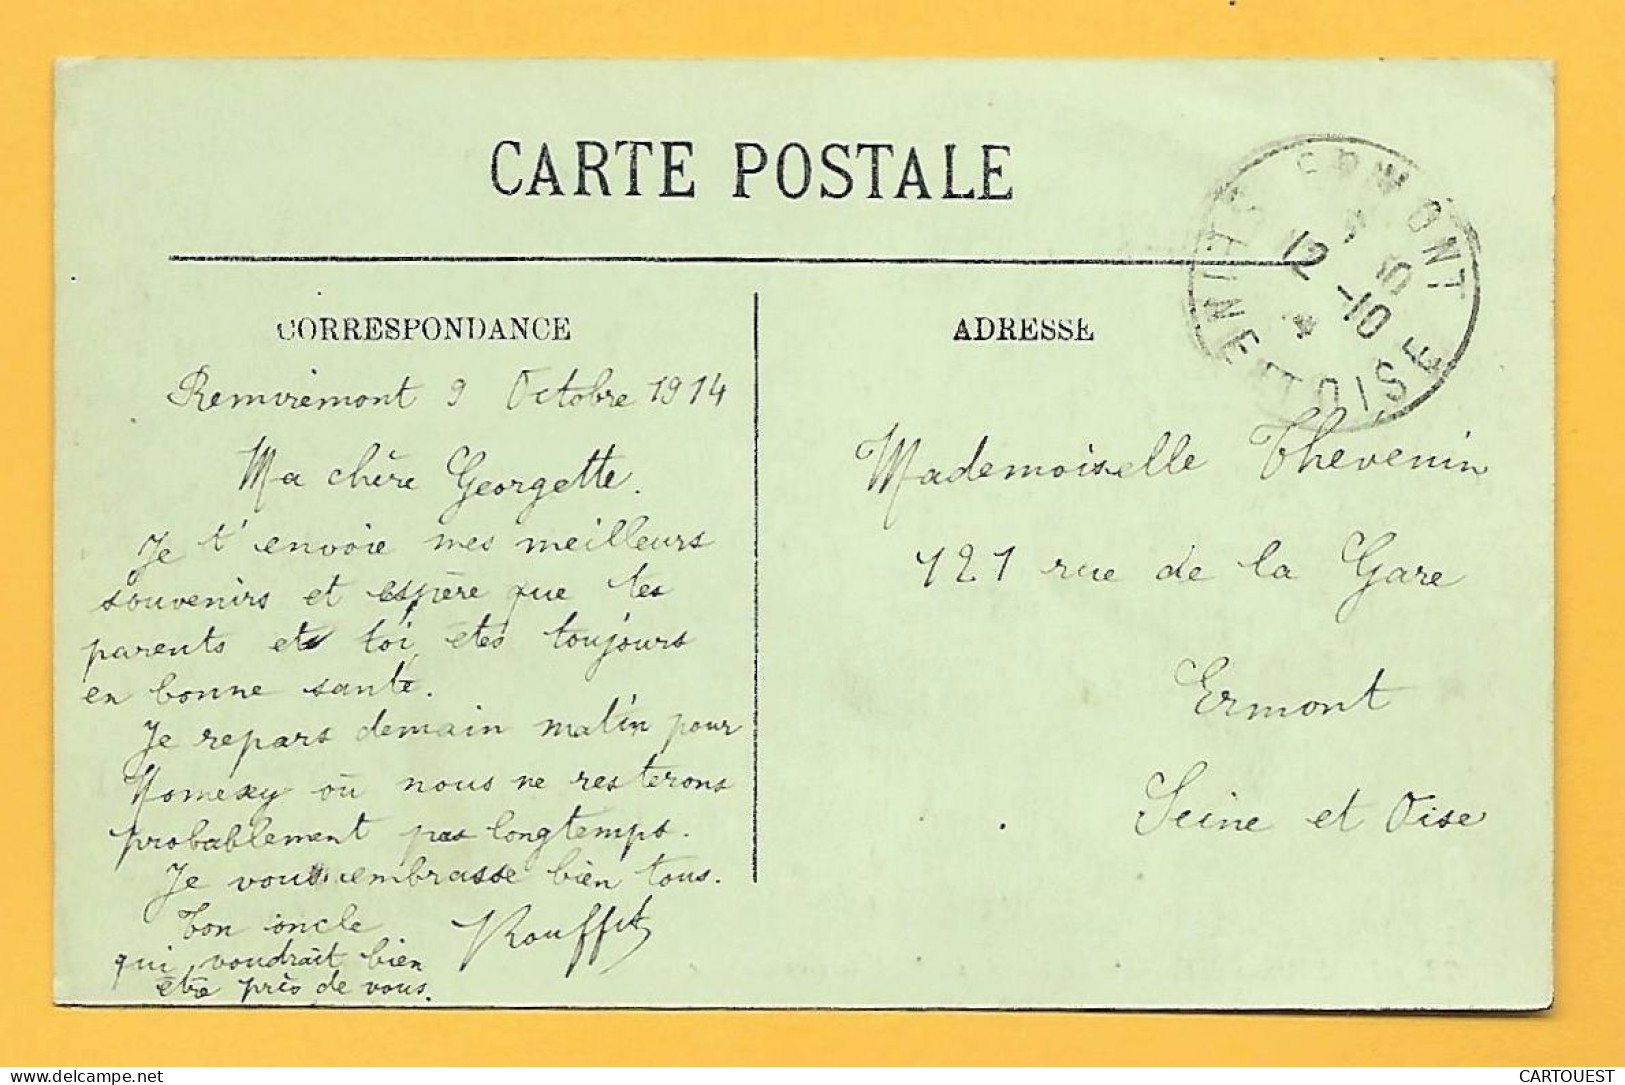 CARTE POSTALE
CORRESPONDANCE
Remiremont 9 Octobre 1914
Ma chère Georgette.
Je t'envoie mes meilleurs
souvenirs et espère que tes
parents et toi, êtes toujours
en bonne santé.
Je repars demain matin pour
Nomexy où nous ne resterons
probablement pas longtemps.
Je vous embrasse bien tous.
Ton oncle
qui voudrait bien
être près de vous.
ADRESSE
ERMONT
12 -10
SEINE ET OISE
Mademoiselle Thevenin
121 rue de la Gare
Ermont
Seine et Oise
delcampe.net
CARTOUEST